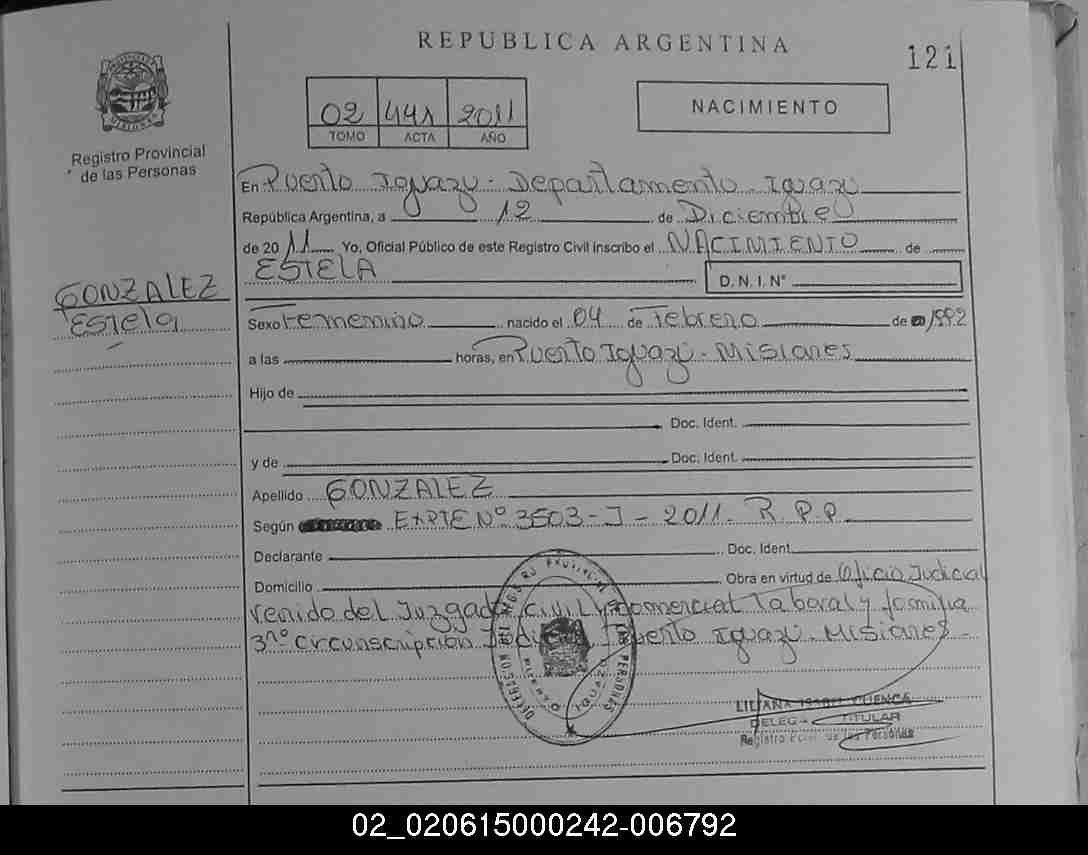 REPUBLICA ARGENTINA
121
Registro Provincial
de las Personas
02 441 2011
TOMO ACTA AÑO
NACIMIENTO
En Puerto Iguazú - Departamento Iguazú
República Argentina, a 12 de Diciembre
de 2011 Yo, Oficial Público de este Registro Civil inscribo el NACIMIENTO de
ESTELA D. N. I. Nº
GONZALEZ
Estela
Sexo Femenino nacido el 04 de Febrero de 1992
a las horas, en Puerto Iguazú - Misiones
Hijo de
Doc. Ident.
y de Doc. Ident.
Apellido GONZALEZ
Según EXPTE Nº 3503-J-2011. R.P.P.
Declarante Doc. Ident.
Domicilio Obra en virtud de Oficio Judicial
venido del Juzgado Civil y comercial laboral y familia
3ra circunscripción Judicial Puerto Iguazú Misiones-
REGISTRO PROVINCIAL DE LAS PERSONAS
PUERTO IGUAZU
LILIANA CUENCA
TITULAR
Registro de las Personas
02_020615000242-006792